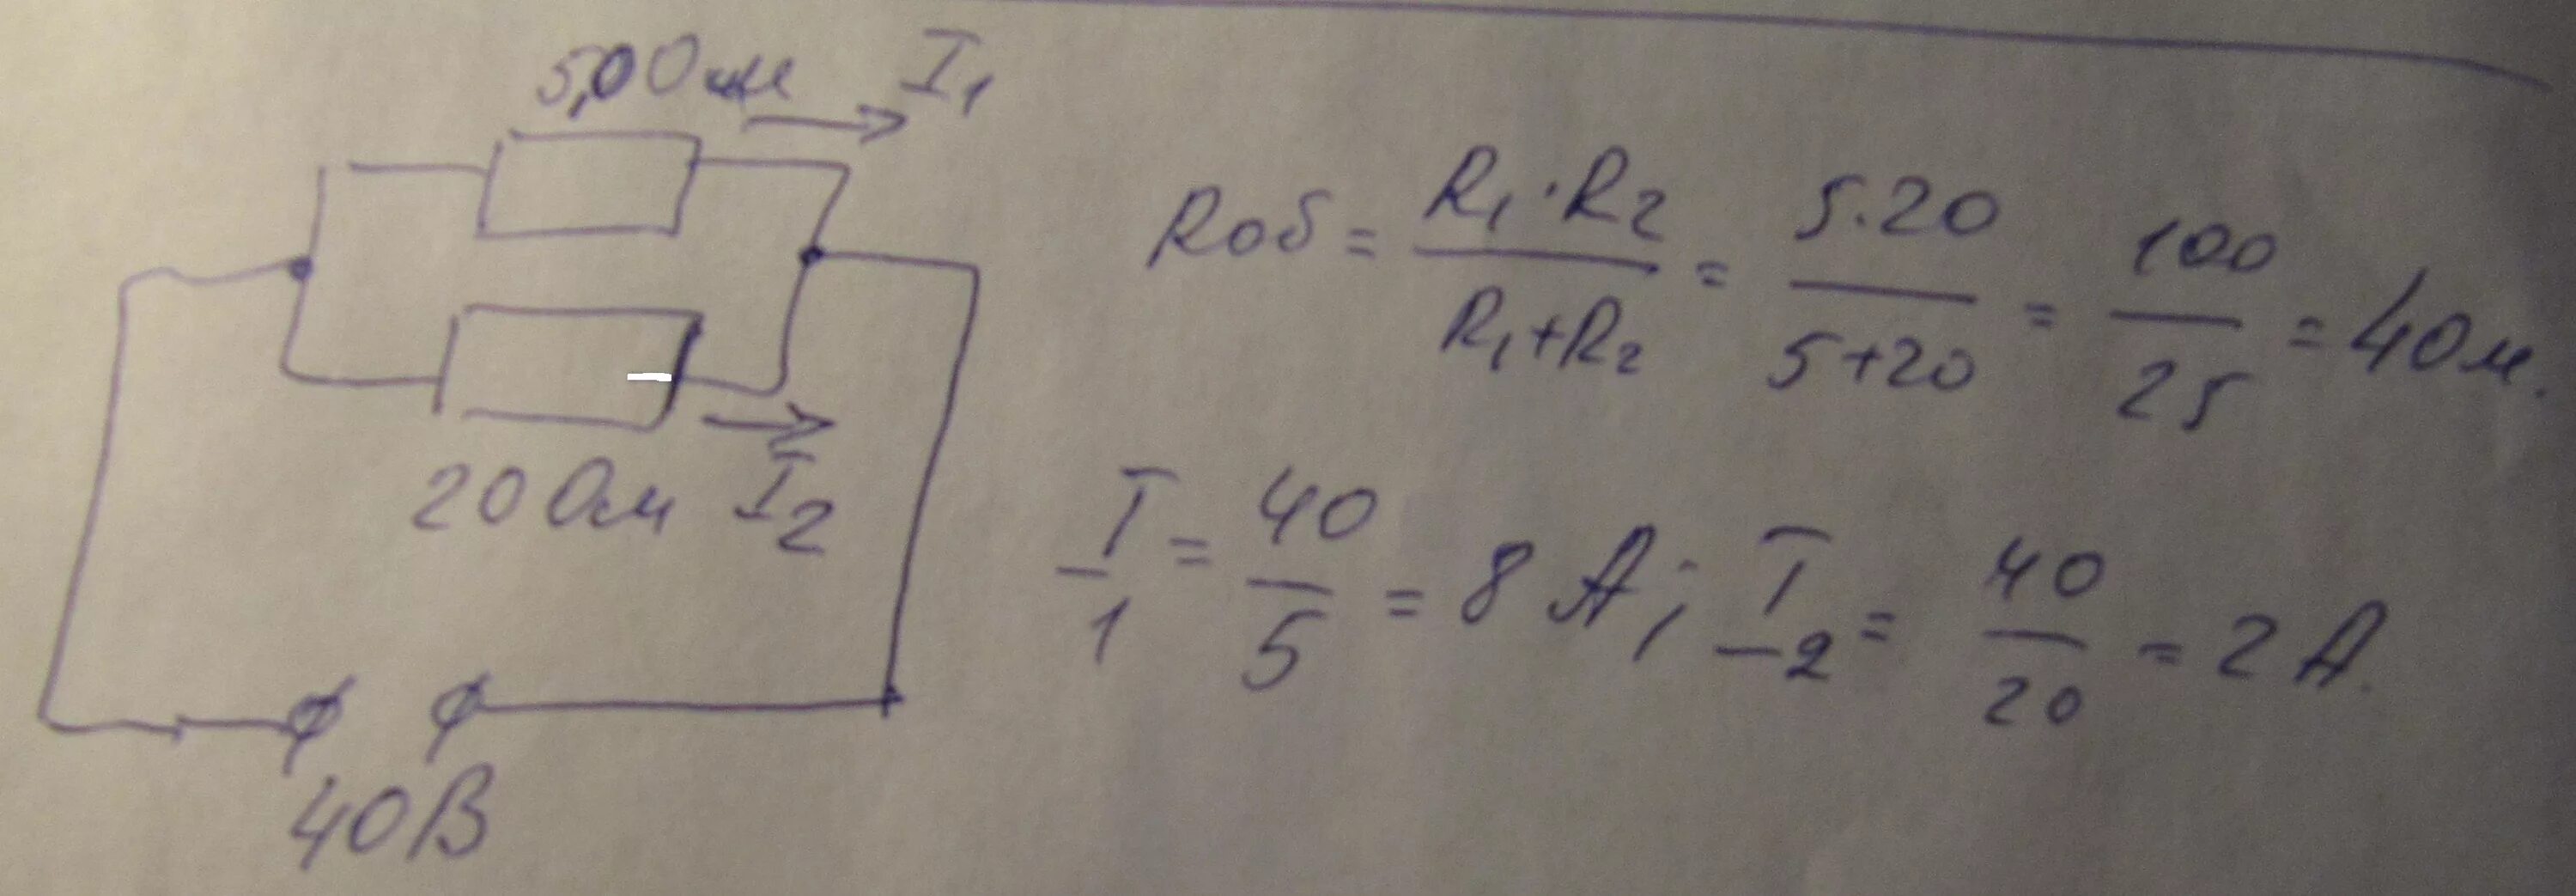 5,0 Ом I₁
20 Ом I₂
40В
Rоб = R₁·R₂ / R₁+R₂ = 5·20 / 5+20 = 100 / 25 = 4 Ом.
I₁ = 40 / 5 = 8 А; I₂ = 40 / 20 = 2 А.